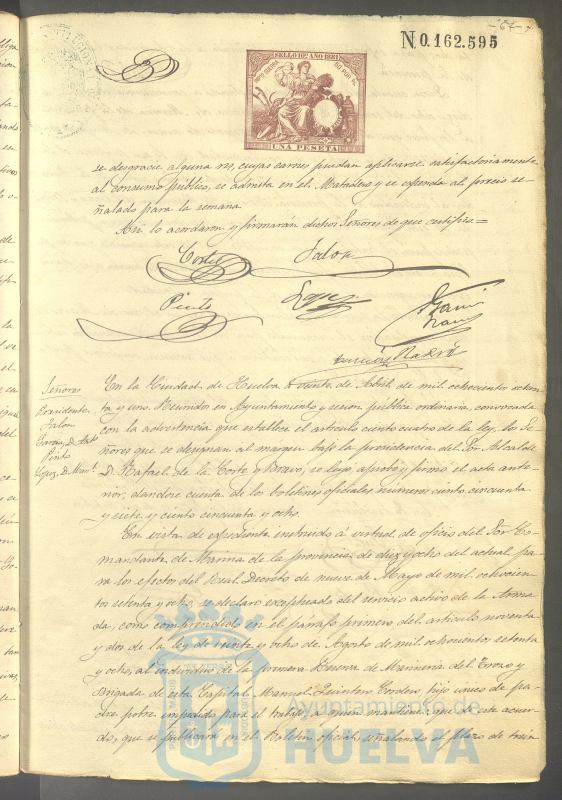 -64-
N 0.162.595
SELLO 10º AÑO 1881
UNA PESETA
se desgracie alguna res, cuyas carnes puedan aplicarse satisfactoriamente
al consumo público, se admita en el Matadero y se expenda al precio se-
ñalado para la semana
Así lo acordaron y firmarán dichos Señores de que certifico.=
Corte Jalon
Pinto Lopez
Garcia
En la Ciudad de Huelva a veinte de Abril de mil ochocientos ochen-
ta y uno. Reunidos en Ayuntamiento y sesion publica ordinaria, convocada
con la advertencia que establece el articulo ciento cuatro de la ley, los Se-
ñores que se designan al margen bajo la presidencia del Sor Alcalde
D. Rafael de la Corte y Bravo, se leyó, aprobó y firmó el acta ante-
rior, dandose cuenta de los boletines oficiales números ciento cincuenta
y siete y ciento cincuenta y ocho.
Señores
Presidente
Jalon
Garcia, D. Anto
Pinto
Lopez, D. Manl
En vista de espediente instruido á virtud de oficio del Sor Co-
mandante de Marina de la provincia de diez y ocho del actual, pa-
ra los efectos del Real Decreto de nueve de Mayo de mil ochocien-
tos setenta y ocho, se declaró exceptuado del servicio activo de la Arma-
da, como comprendido en el párrafo primero del articulo noventa
y dos de la ley de veinte y ocho de Agosto de mil ochocientos setenta
y ocho, al individuo de la primera Reserva de Marineria del Trozo y
Brigada de esta Capital Manuel Quintero Cordero, hijo unico de pa-
dre pobre impedido para el trabajo á quien mantiene: que de este acuer-
do, que se publicará en el Boletin oficial, señalando el plazo de trein
Ayuntamiento de
HUELVA